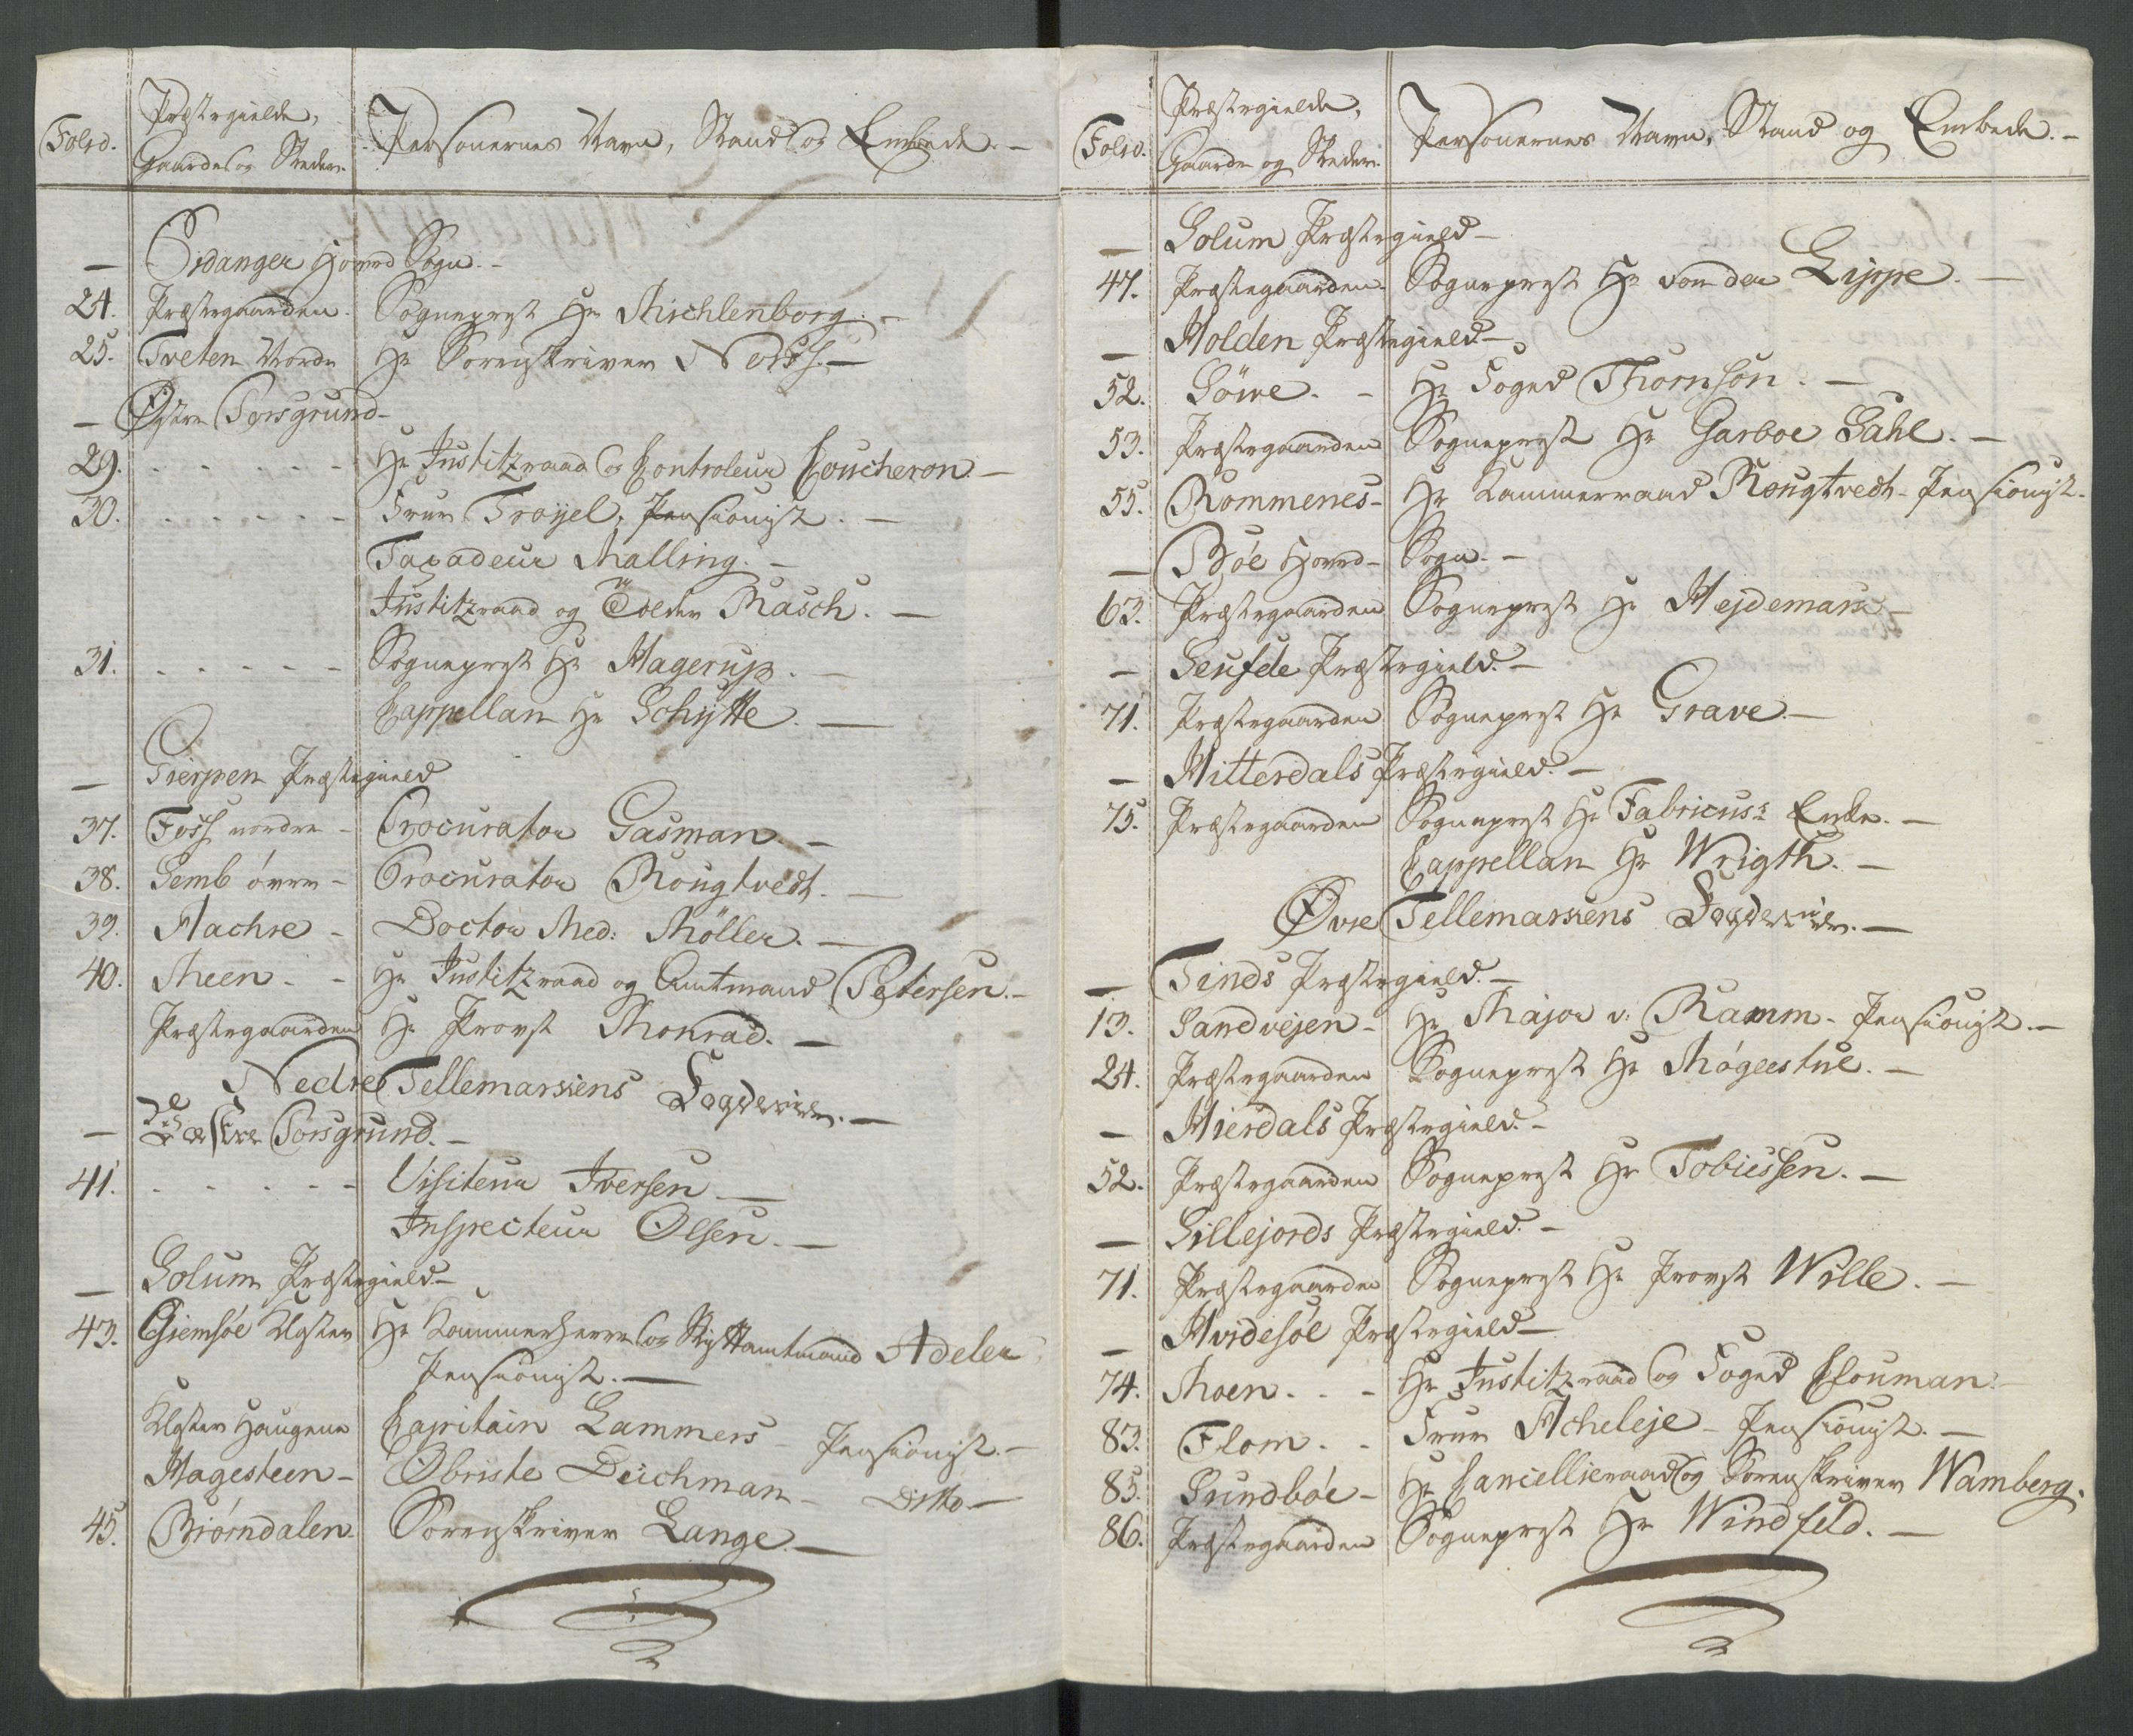 Folio. Præstegielde, Personernes Navn, Stand og Embede.
Gaarde og Steder.
— Eidanger Hoved Sogn. –
24. Præstegaarden. Sognepræst Hr Michlenborg. –
25. Tveten Nordre Hr Sorenskriver Ness. –
— Østre Porsgrund –
29. - - - - - Hr Justitzraad og Controleur Coucheron. –
30. - - - - - - Frue Trojel, Pensionist. –
Taxadeur Malling. –
Justitzraad og Tolder Rasch. –
31. - - - - - Sognepræst Hr Hagerup. –
Cappellan Hr Schytte. –
— Gierpen Præstegield
37. Foss nordre – Procurator Gasman. –
38. Semb övre – Procurator Rougtvedt. –
39. Aachre – Doctor Med: Möller. –
40. Meen - - Hr Justitzraad og Amtmand Petersen. –
Præstegaarden Hr Provst Monrad. –
Nedre Tellemarkens Fogderie. –
— Westre Porsgrund. –
41. - - - - - Visiteur Iversen –
Inspecteur Olsen. –
— Solum Præstegield –
43. Giemsöe Kloster Hr Kammerherre og Stiftamtmand Adeler
Pensionist. –
Kloster Haugene Capitain Lammers – Pensionist. –
Hagesteen – Obriste Deichman – Ditto –
45. Biörndalen Sorenskriver Lange. –
Folio. Præstegielde, Personernes Navn, Stand og Embede. –
Gaarde og Steder.
— Solum Præstegield –
47. Præstegaarden. Sognepræst Hr von der Lippe. –
— Holden Præstegield –
52. Söwe. - Hr Foged Thornsön. –
53. Præstegaarden Sognepræst Hr Garboe Sahl. –
55. Rommenes – Hr Kammerraad Rougtvedt – Pensionist.
— Böe Hoved – Sogn. –
63. Præstegaarden Sognepræst Hr Hejdeman –
— Seufde Præstegield. –
71. Præstegaarden Sognepræst Hr Grave. –
— Hitterdals Præstegield. –
75. Præstegaarden Sognepræst Hr Fabricius's Enke. –
Cappellan Hr Wrigth. –
Øvre Tellemarkens Fogderie. –
— Tinds Præstegield. –
13. Sandvejen – Hr Major v: Ramm – Pensionist. –
24. Præstegaarden Sognepræst Hr Mögeestue. –
— Hierdals Præstegield. –
52. Præstegaarden Sognepræst Hr Tobiessen. –
— Sillejords Præstegield. –
71. Præstegaarden Sognepræst Hr Provst Wille. –
— Hvidesöe Præstegield –
74. Moen. - - Hr Justitzraad og Foged Flouman. –
83. Flom. - Frue Acheleje – Pensionist. –
85. Sundböe – Hr Cancellieraad og Sorenskriver Wamberg.
86. Præstegaarden Sognepræst Hr Windfeld. –